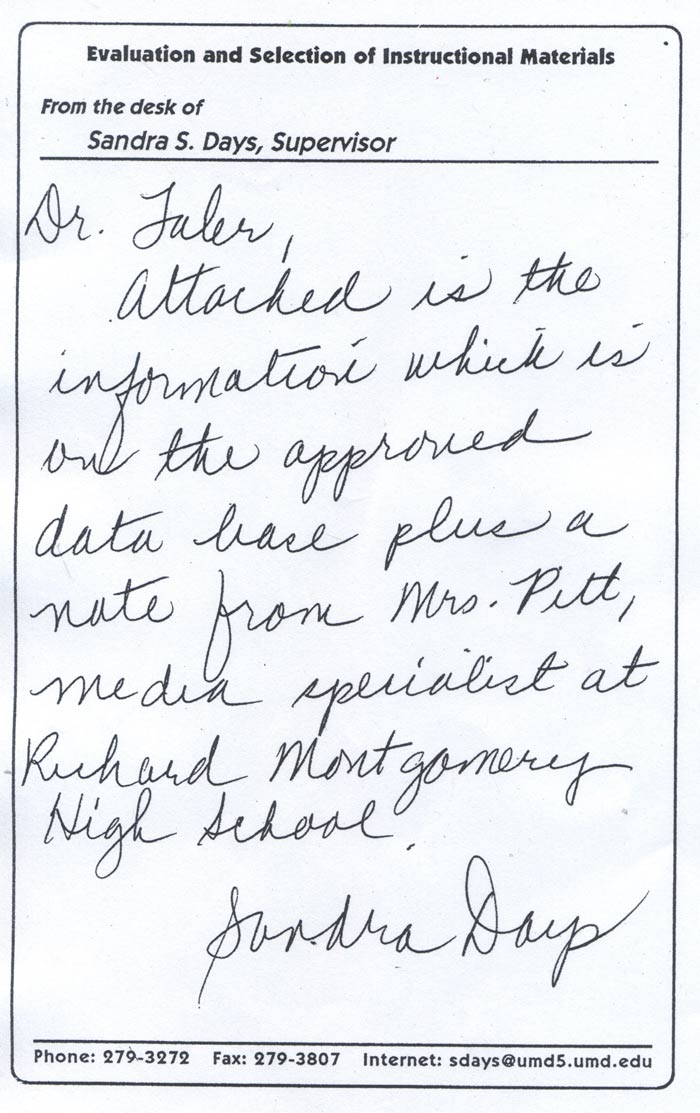 Evaluation and Selection of Instructional Materials
From the desk of
Sandra S. Days, Supervisor
Dr. Faler,
Attached is the
information which is
on the approved
data base plus a
note from Mrs. Pitt,
media specialist at
Richard Montgomery
High School.
Sandra Days
Phone: 279-3272 Fax: 279-3807 Internet: sdays@umd5.umd.edu